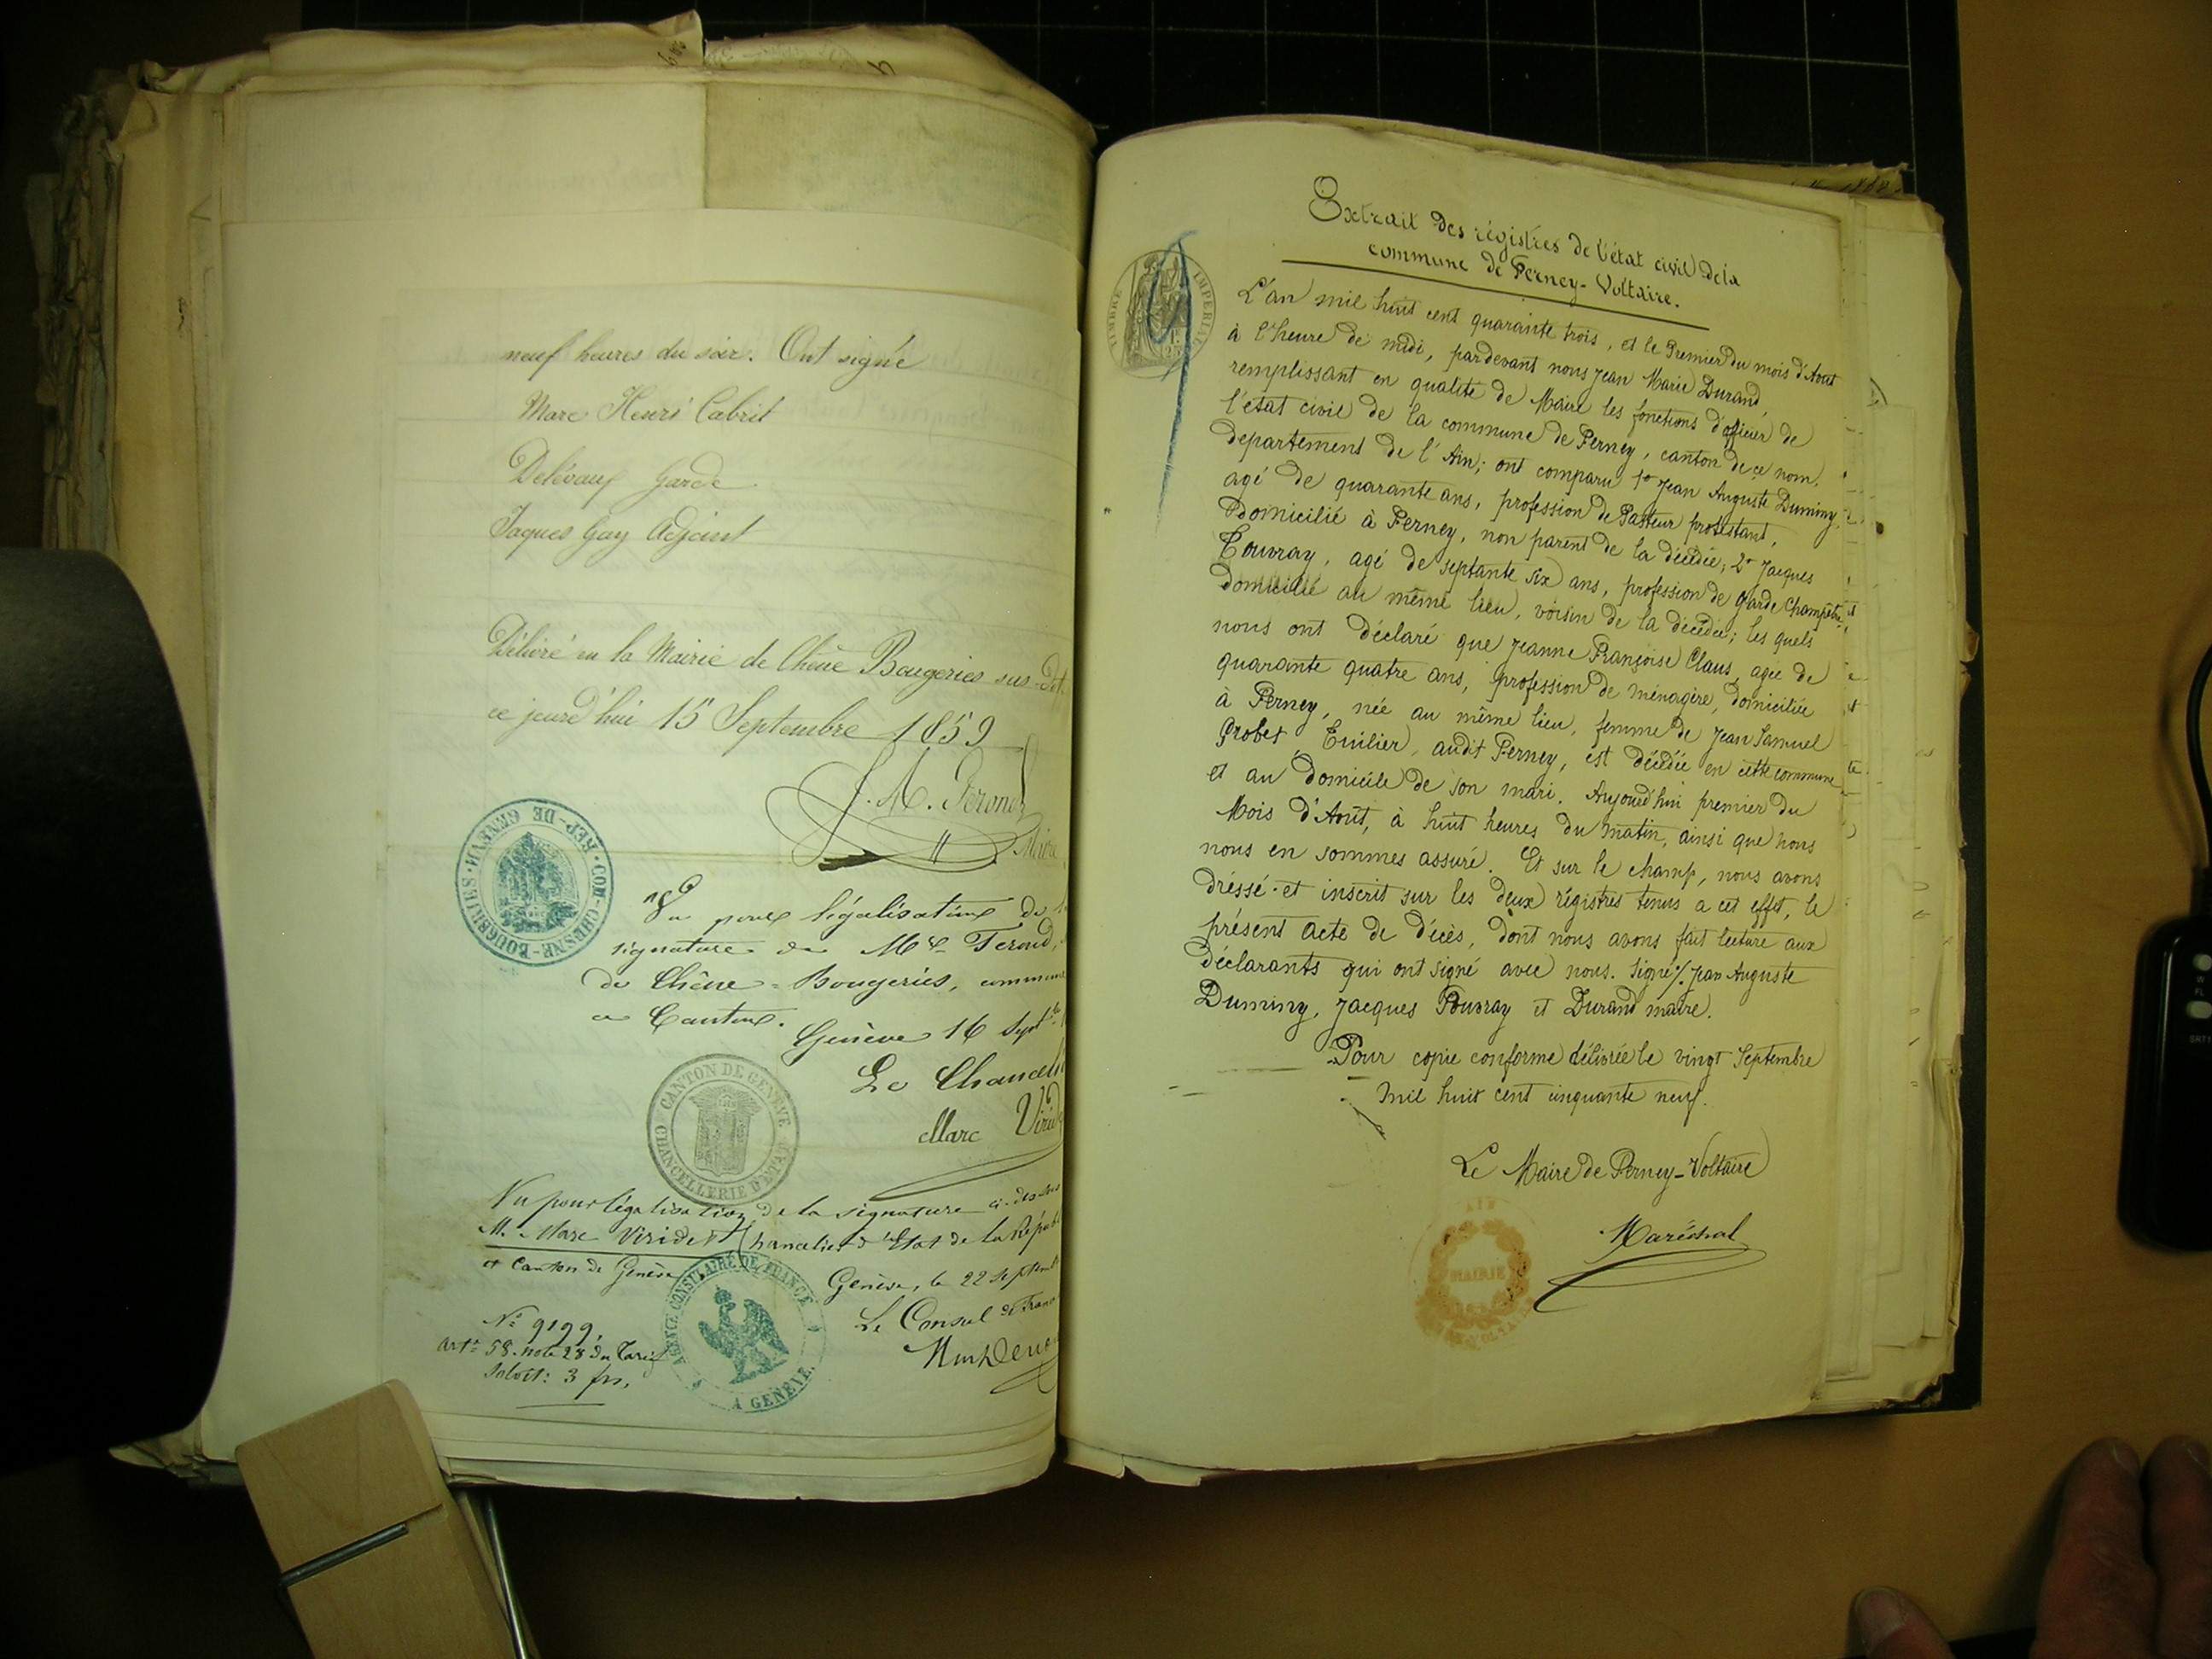 neuf heures du soir. Ont signé
Marc Henri Cabrit
Delévaux Garde
Jaques Gay Adjoint
Délivré en la Mairie de Chêne Bougeries sus-dit
ce jourd'hui 15 Septembre 1859
J. A. Ferond
Maire
COM-CHESNE-BOUGERIES · REP-DE GENEV.
Vu pour légalisation de la
signature de Mr Ferond,
de Chêne-Bougeries, commune
Canton.
Genève 16 Sept
Le Chancel
Marc Viride
CANTON DE GENEVE
CHANCELLERIE D'ETAT
Vu pour légalisation de la signature ci-dessus
M. Marc Viridet Chancelier d'Etat de la Répub
et Canton de Genève
Genève, le 22 Septemb
Le Consul de Franc
AGENCE CONSULAIRE DE FRANCE
A GENÈVE.
N° 9199.
Artle 58. note 28 du Tarif
3 frs.
Extrait des régistres de l'état civil de la
commune de Ferney-Voltaire.
TIMBRE IMPERIAL
1 F. 25
L'an mil huit cent quarante trois, et le Premier du mois d'Aout
à l'heure de midi, pardevant nous Jean Marie Durand,
remplissant en qualité de Maire les fonctions d'officier de
l'état civil de la commune de Ferney, canton de ce nom,
departement de l'Ain; ont comparu 1° Jean Auguste Duminy,
agé de quarante ans, profession de Pasteur protestant,
domicilié à Ferney, non parent de la décédée; 2° Jacques
Pouvray, agé de septante six ans, profession de Garde Champêtre,
domicilié au même lieu, voisin de la décédée; les quels
nous ont déclaré que Jeanne Françoise Claus, agée de
quarante quatre ans, profession de ménagère, domiciliée
à Ferney, née au même lieu, femme de Jean Samuel
Grobet, Tuilier, audit Ferney, est décédée en cette commune
et au domicile de son mari. Aujourd'hui premier du
Mois d'Aout, à huit heures du matin, ainsi que nous
nous en sommes assuré. Et sur le champ, nous avons
dréssé et inscrit sur les deux régistres tenus a cet effet, le
présent acte de décès, dont nous avons fait lecture aux
déclarants qui ont signé avec nous. Signé ./. Jean Auguste
Duminy, Jacques Pouvray et Durand maire.
Pour copie conforme délivrée le vingt Septembre
mil huit cent cinquante neuf.
Le Maire de Ferney-Voltaire
Maréchal
AIN
MAIRIE